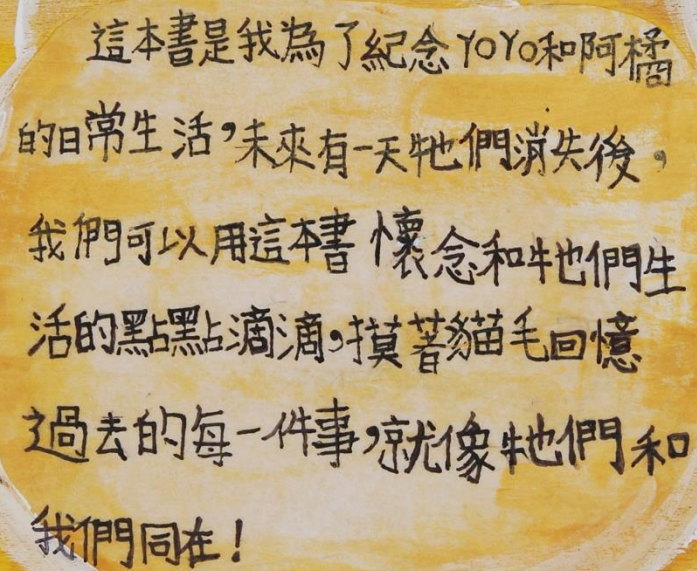 這本書是我為了紀念YOYO和阿橘
的日常生活，未來有一天牠們消失後，
我們可以用這本書懷念和牠們生
活的點點滴滴，摸著貓毛回憶
過去的每一件事，就像牠們和
我們同在！